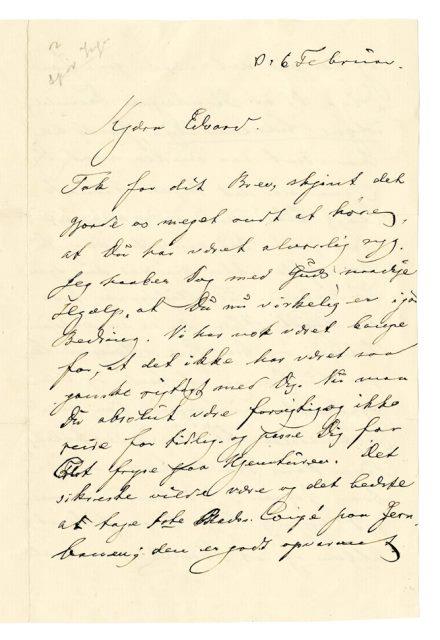 D. 6 Februar.
Kjære Edvard.
Tak for dit Brev, skjønt det
gjorde os meget ondt at høre,
at Du har været alvorlig syg.
Jeg haaber dog med Guds naadige
Hjælp, at Du nu virkelig er i god
Bedring. Vi har nok været bange
for, at det ikke har været saa
ganske rigtigt med Dig. Nu maa
Du absolut være forsigtig og ikke
reise for tidlig og passe Dig for
at fryse paa Hjemturen. Det
sikreste vilde være og det bedste
at tage Coupé paa Jern
banen; den er godt opvarmet